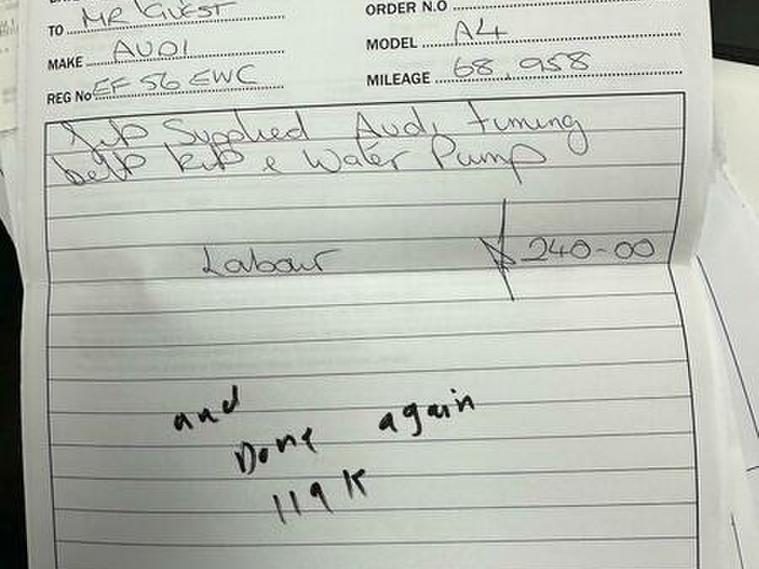 TO MR GUEST
ORDER N.O
MAKE AUDI
MODEL A4
REG No EF 56 EWC
MILEAGE 68,958
Supplied Audi timing
belt kit & Water Pump
Labour 240-00
and
Done again
119K